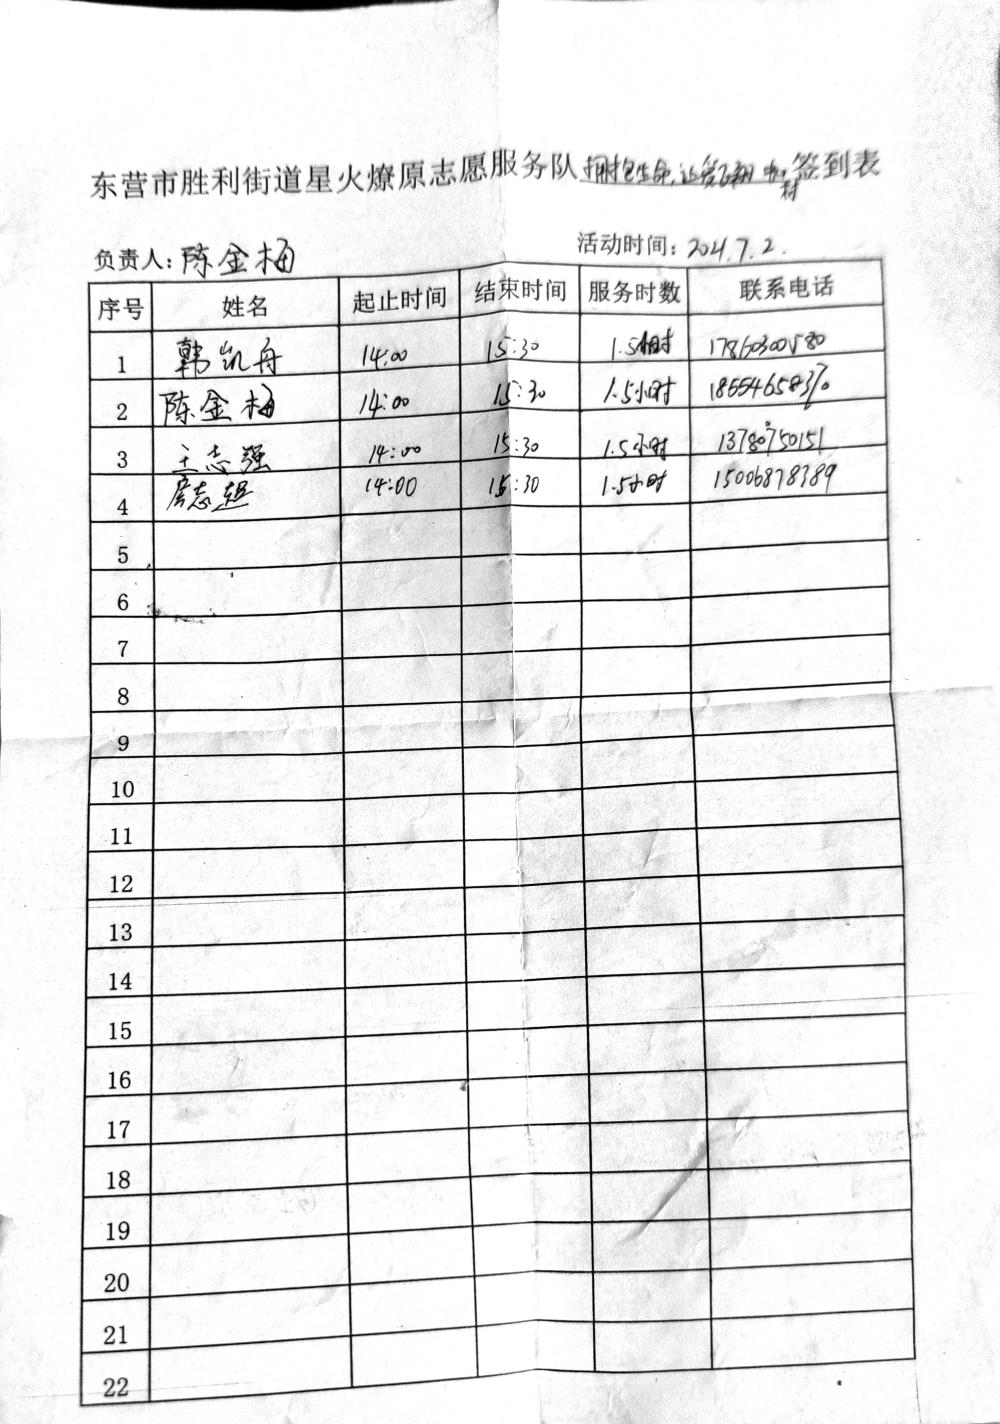 东营市胜利街道星火燎原志愿服务队拥抱生命,让爱飞翔 签到表
负责人:陈金梅 活动时间:2024.7.2.
序号 姓名 起止时间 结束时间 服务时数 联系电话
1 韩凯舟 14:00 15:30 1.5小时 17860300580
2 陈金梅 14:00 15:30 1.5小时
3 王志强 14:00 15:30 1.5小时 13780750151
4 志超 14:00 15:30 1.5小时 15006878389
5
6
7
8
9
10
11
12
13
14
15
16
17
18
19
20
21
22